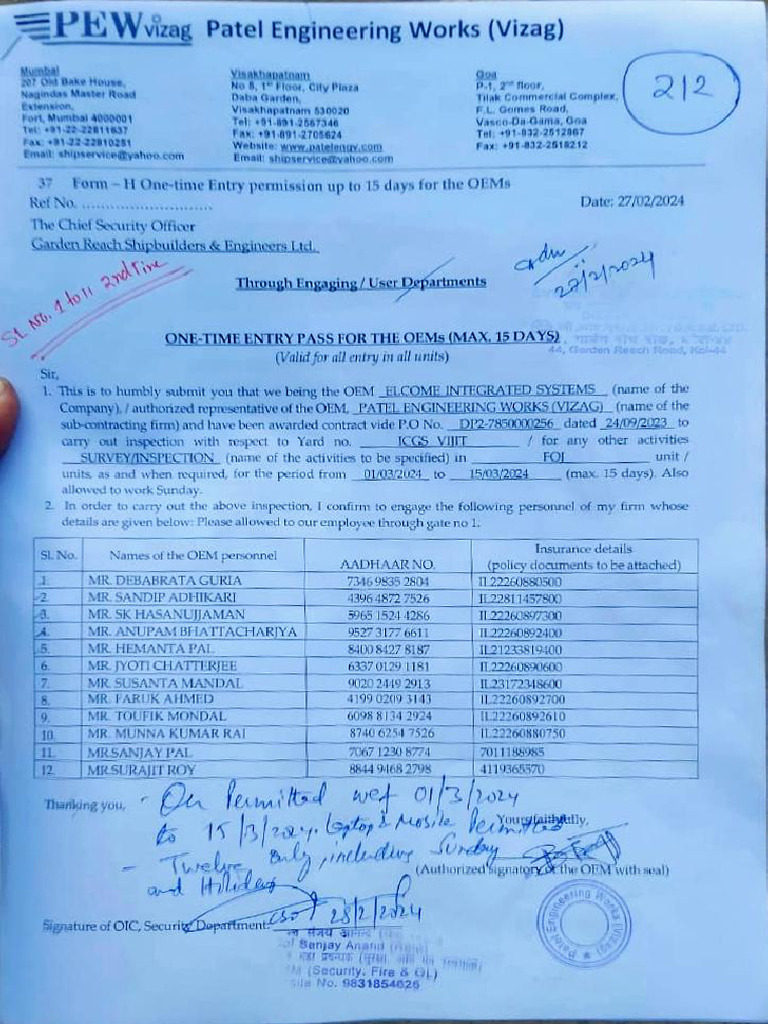 PEW vizag Patel Engineering Works (Vizag)
Mumbai
207 Old Bake House,
Nagindas Master Road
Extension,
Fort, Mumbai 4000001
Tel: +91-22-22811637
Fax: +91-22-22810251
Email: shipservice@yahoo.com
Visakhapatnam
No 8, 1st Floor, City Plaza
Daba Garden,
Visakhapatnam 530020
Tel: +91-891-2567346
Fax: +91-891-2705624
Website: www.patelengv.com
Email: shipservice@yahoo.com
Goa
P-1, 2nd floor,
Tilak Commercial Complex,
F.L. Gomes Road,
Vasco-Da-Gama, Goa
Tel: +91-832-2512867
Fax: +91-832-2518212
212
37 Form – H One-time Entry permission up to 15 days for the OEMs
Ref No. ............................
Date: 27/02/2024
The Chief Security Officer
Garden Reach Shipbuilders & Engineers Ltd.
Sl. No. 1 to 11 2nd Time
Through Engaging / User Departments
27/2/2024
ONE-TIME ENTRY PASS FOR THE OEMs (MAX. 15 DAYS)
44, Garden Reach Road, Kol-44
(Valid for all entry in all units)
Sir,
1. This is to humbly submit you that we being the OEM ELCOME INTEGRATED SYSTEMS (name of the
Company), / authorized representative of the OEM, PATEL ENGINEERING WORKS (VIZAG) (name of the
sub-contracting firm) and have been awarded contract vide P.O No. DP2-7850000256 dated 24/09/2023 to
carry out inspection with respect to Yard no. ICGS VIJIT / for any other activities
SURVEY/INSPECTION (name of the activities to be specified) in FOJ unit /
units, as and when required, for the period from 01/03/2024 to 15/03/2024 (max. 15 days). Also
allowed to work Sunday.
2. In order to carry out the above inspection, I confirm to engage the following personnel of my firm whose
details are given below: Please allowed to our employee through gate no 1.
Sl. No. Names of the OEM personnel AADHAAR NO. Insurance details
(policy documents to be attached)
1. MR. DEBABRATA GURIA 7346 9835 2804 IL22260880500
2. MR. SANDIP ADHIKARI 4396 4872 7526 IL22811457800
3. MR. SK HASANUJJAMAN 5965 1524 4286 IL22260897300
4. MR. ANUPAM BHATTACHARJYA 9527 3177 6611 IL22260892400
5. MR. HEMANTA PAL 8400 8427 8187 IL21233819400
6. MR. JYOTI CHATTERJEE 6337 0129 1181 IL22260890600
7. MR. SUSANTA MANDAL 9020 2449 2913 IL23172348600
8. MR. FARUK AHMED 4199 0209 3143 IL22260892700
9. MR. TOUFIK MONDAL 6098 8134 2924 IL22260892610
10. MR. MUNNA KUMAR RAI 8740 6254 7526 IL22260880750
11. MR.SANJAY PAL 7067 1230 8774 7011188985
12. MR.SURAJIT ROY 8844 9468 2798 4119365570
Thanking you,
Permitted wef 01/3/2024
to 15/3/2024. Laptop & Mobile Permitted
Yours faithfully,
- Twelve only, including Sunday
and Holiday
(Authorized signatory of the OEM with seal)
Signature of OIC, Security Department:
CSO 28/2/2024
Sanjay Anand
(Security, Fire & GL)
No. 9831854626
Patel Engineering Works (Vizag)